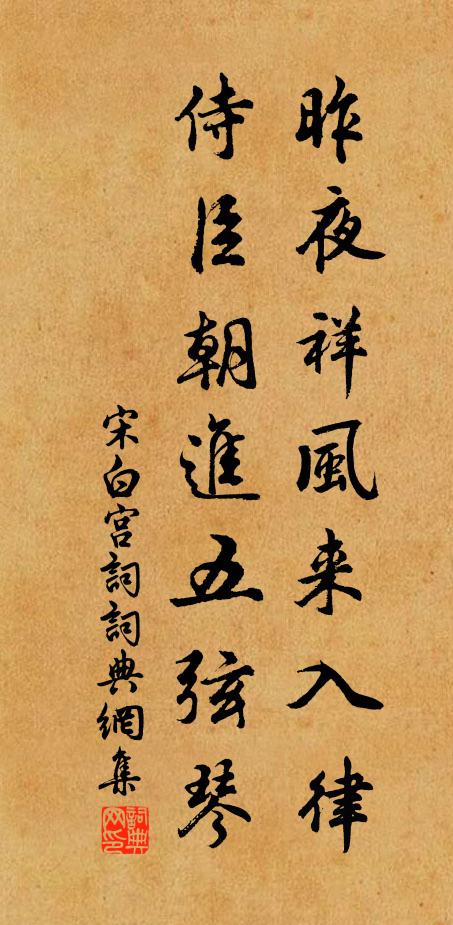 昨夜祥風来入律
侍臣朝進五弦琴
宋白宫詞詞典網集
詞典网印